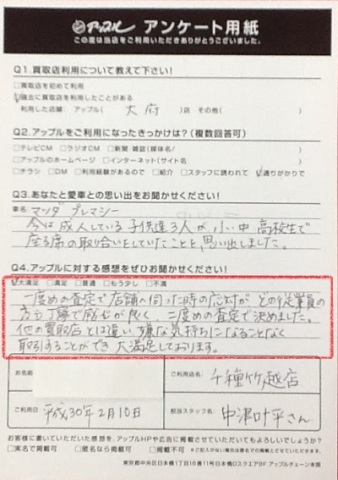 アップル アンケート用紙
この度は当店をご利用いただきありがとうございました。
Q1.買取店利用について教えて下さい!
□買取店を初めて利用
☑過去に買取店を利用したことがある
利用した店舗: アップル( 大府 )店 その他( )
Q2.アップルをご利用になったきっかけは?(複数回答可)
□テレビCM □ラジオCM □新聞・雑誌(媒体名/ )
□アップルのホームページ □インターネット(サイト名 )
□チラシ □DM □利用経験があるので □紹介 □スタッフに誘われて ☑通りがかりで
Q3.あなたと愛車との思い出をお聞かせください!
車名: マツダ プレマシー
今は成人している子供達3人が小、中高校生で
座る席の取り合いをしていたことを思い出しました。
Q4.アップルに対する感想をぜひお聞かせください!
☑大満足 □満足 □普通 □もう少し □不満
一度めの査定で店舗へ伺った時の応対が どの従業員の
方も丁寧で感じが良く、二度めの査定で決めました。
他の買取店とは違い 嫌な気持ちになることなく
取引することができ 大満足しております。
お名前
ご利用店名 千種竹越店
ご利用日 平成30年2月10日
担当スタッフ名 中津叶平さん
お客様に書いていただいた感想を、アップルHPや広告に掲載させていただいてもよろしいでしょうか?
□実名で掲載可 □匿名なら掲載可 □掲載不可
東京都中央区日本橋1丁目10番11号日本橋DスクエアBF アップルチェーン本部